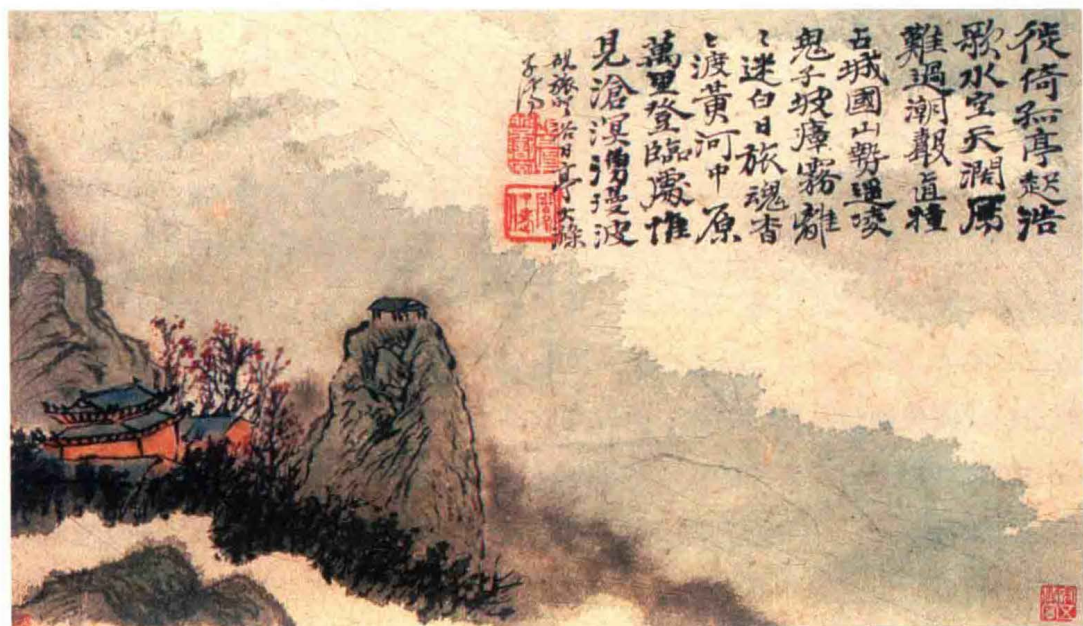 徙倚孤亭起浩
歌水空天濶鴈
難過潮聲直撞
古城國山勢遥凌
鬼子坡瘴霧離
〻迷白日旅魂杳
〻渡黄河中原
萬里登臨處惟
見滄溟漫波
硯旅浴日亭大滌
子濟